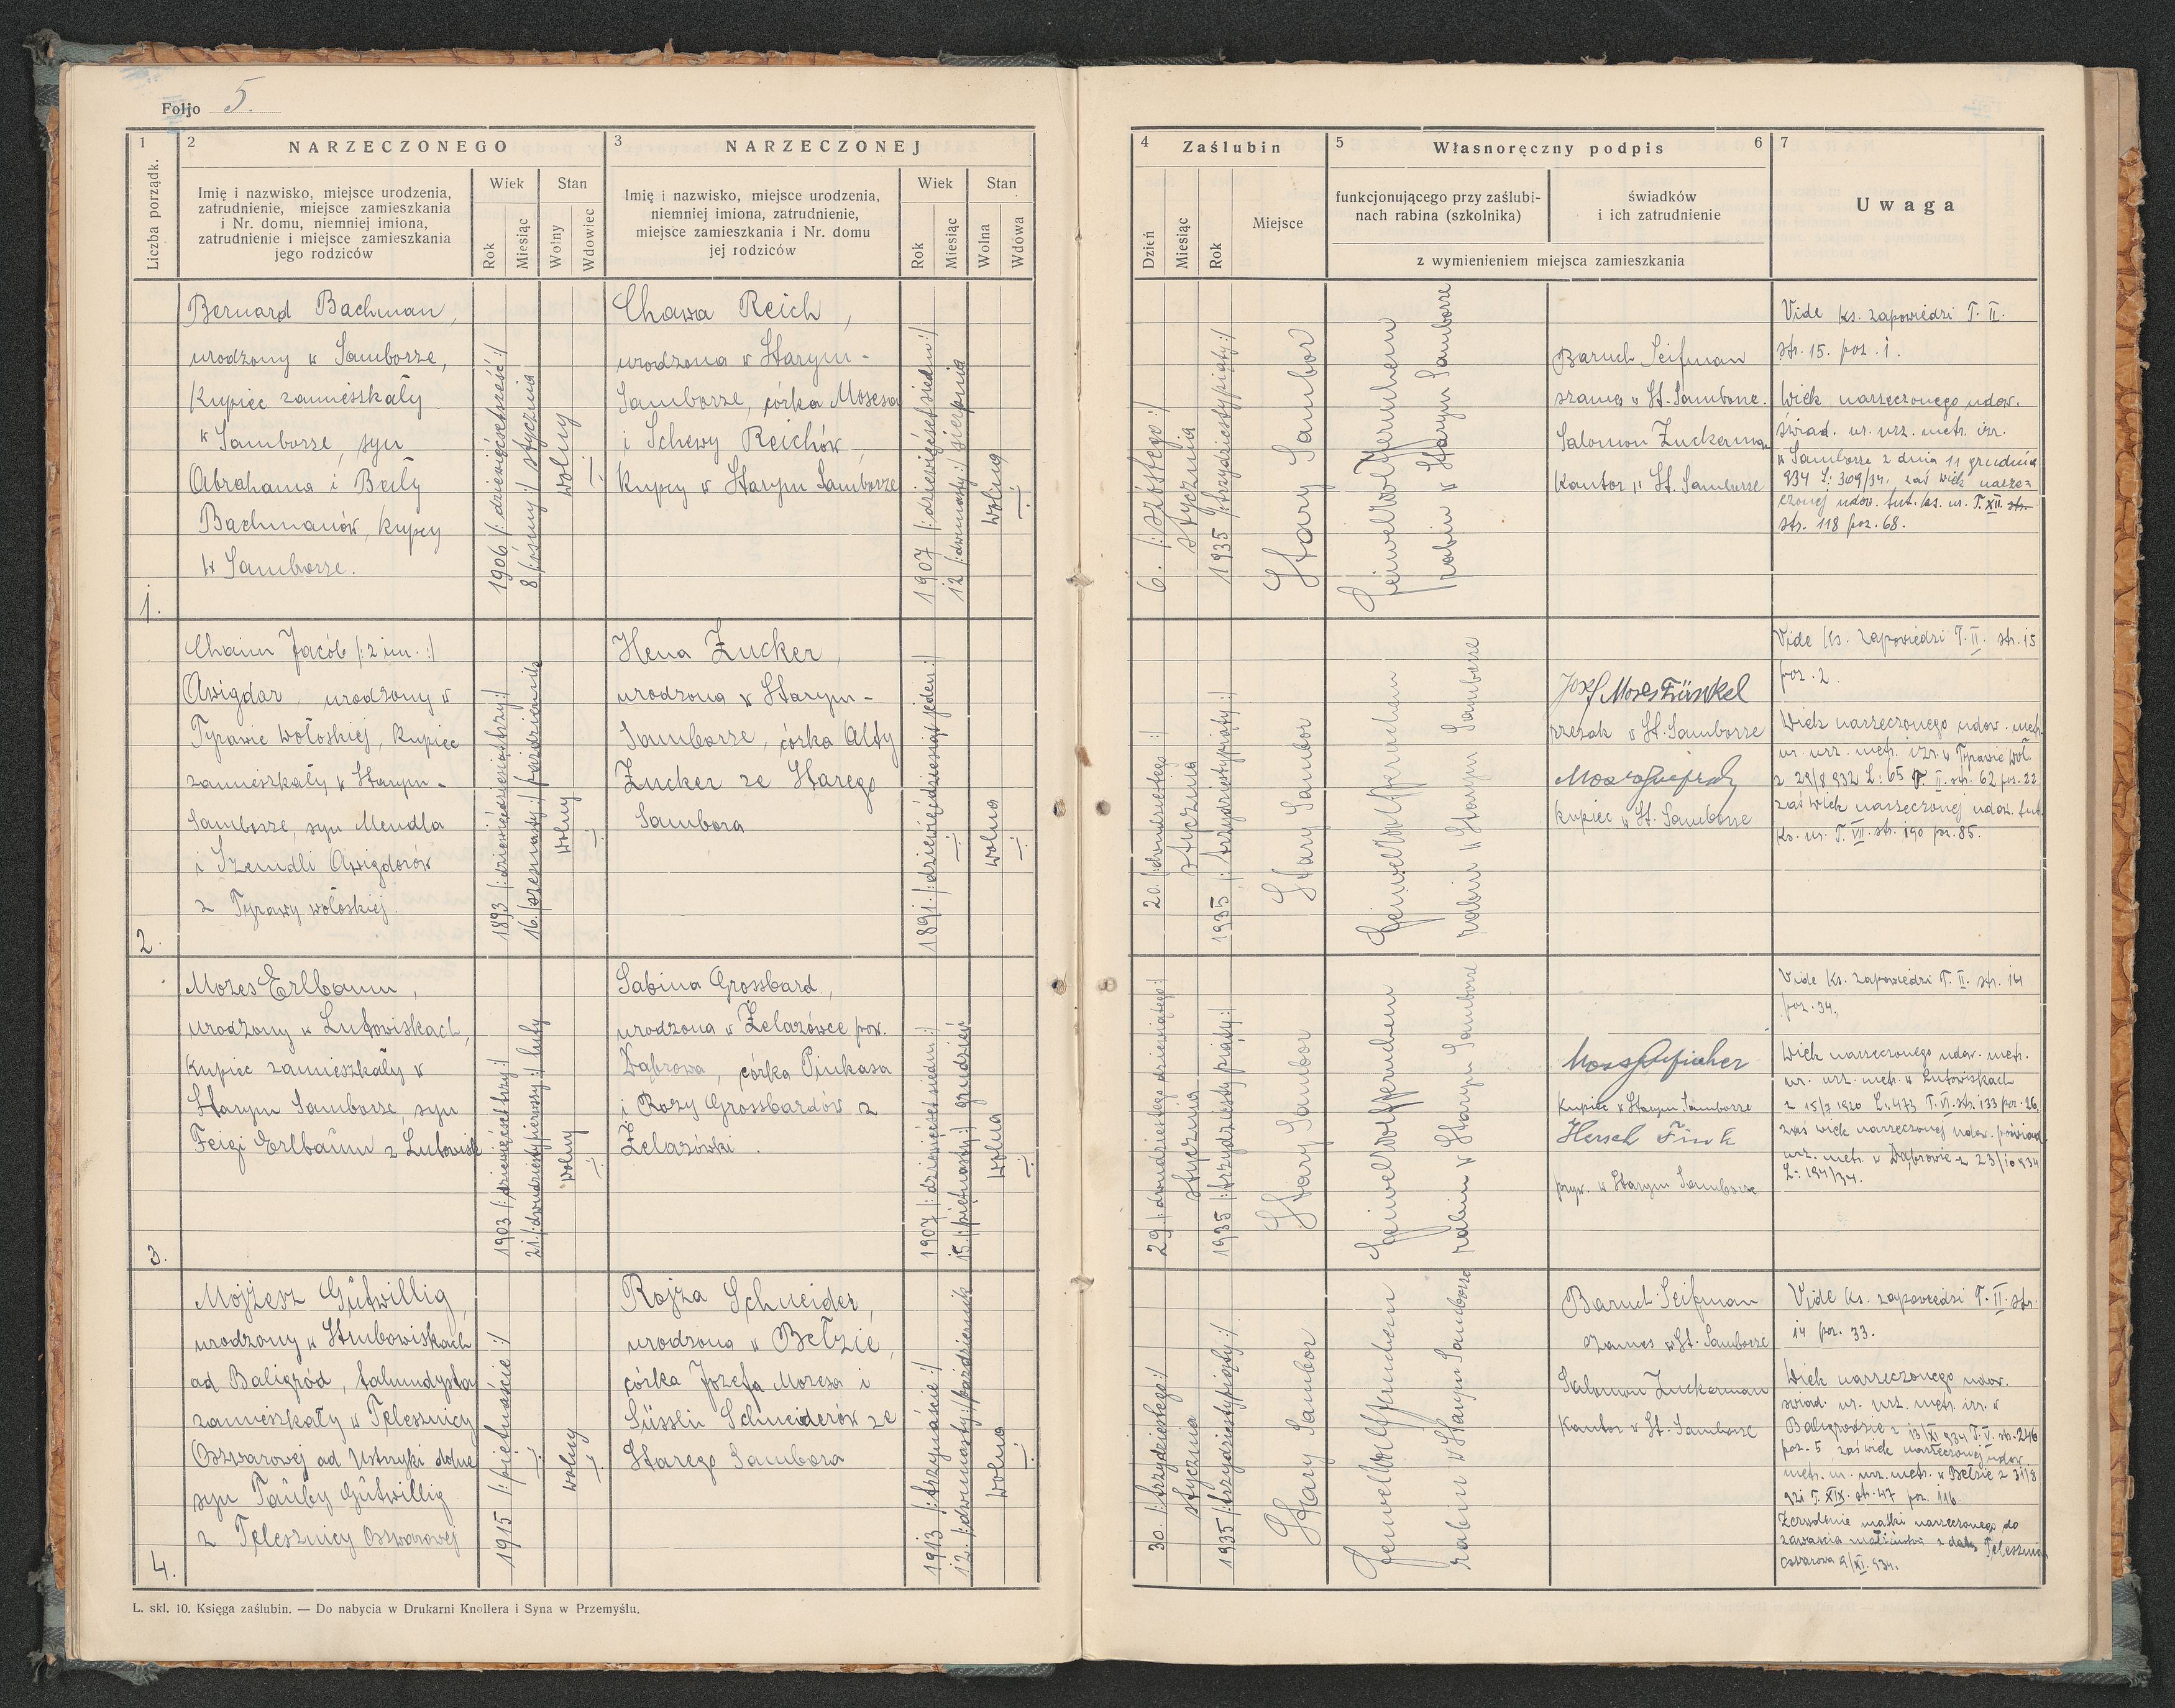 Foljo 5.
1
Liczba porządk.
2
NARZECZONEGO
Imię i nazwisko, miejsce urodzenia,
zatrudnienie, miejsce zamieszkania
i Nr. domu, niemniej imiona,
zatrudnienie i miejsce zamieszkania
jego rodziców
Wiek
Rok
Miesiąc
Stan
Wolny
Wdowiec
3
NARZECZONEJ
Imię i nazwisko, miejsce urodzenia,
niemniej imiona, zatrudnienie,
miejsce zamieszkania i Nr. domu
jej rodziców
Wiek
Rok
Miesiąc
Stan
Wolna
Wdowa
4
Zaślubin
Dzień
Miesiąc
Rok
Miejsce
5
Własnoręczny podpis
6
funkcjonującego przy zaślubi-
nach rabina (szkolnika)
świadków
i ich zatrudnienie
z wymienieniem miejsca zamieszkania
7
Uwaga
1.
Bernard Bachman,
urodzony w Samborze,
Kupiec zamieszkały
w Samborze, syn
Abrahama i Beily
Bachmanów, kupcy
w Samborze.
1906 /: dziewięćsetsześć :/
8 /:ósmy:/ stycznia
wolny
Chawa Reich,
urodzona w Starym-
Samborze, córka Mosesa
i Schewy Reichów,
kupcy w Starym Samborze
1907 /: dziewięćsetsiedem :/
12 /:dwunasty:/ sierpnia
wolna
6. /: szóstego :/
stycznia
1935 /:trzydziestypiąty:/
Stary Sambor
Feiwel Wolf
rabin w Starym Samborze
Baruch Seifman
szames w St. Samborze.
Salomon Zuckerman
Kantor w St. Samborze
Vide ks. zapowiedzi T. II.
str. 15. poz. 1.
Wiek narzeczonego udow.
świad. ur. urz. metr. izr.
w Samborze z dnia 11 grudnia
934 L: 309/34, zaś wiek narze=
czonej udow. tut. ks. ur. T. XII. str.
str. 118 poz. 68.
2.
Chaim Jacób /: 2 im. :/
Awigdor, urodzony w
Tyrawie wołoskiej, Kupiec
zamieszkały w Starym-
Samborze, syn Mendla
i Szendli Awigdorów
z Tyrawy wołoskiej.
16. /:szesnasty:/ październik
wolny
Hena Zucker,
urodzona w Starym-
Samborze, córka Alty
Zucker ze Starego
Sambora
1891. /: dziewięćdziesiąt jeden :/
wolna
20. /:dwudziestego :/
stycznia
1935 /: trzydziestypiąty :/
Stary Sambor
Feiwel Wolf
rabin w Starym Samborze
Josef Moses Fränkel
rzezak w St. Samborze
kupiec w St. Samborze
Vide ks. zapowiedzi T. II. str. 15
poz. 2.
Wiek narzeczonego udow. metr.
ur. urz. metr. izr. w Tyrawie woł.
z 29/8 932 L: 65 T. II. str. 62 poz. 22
zaś wiek narzeczonej udow. tut.
ks. ur. T. VII. str. 190 poz. 85.
3.
Mozes Erlbaum,
urodzony w Lutowiskach,
Kupiec zamieszkały w
Starym Samborze, syn
Feigi Erlbaum z Lutowisk
1903 /: dziewięćsettrzy :/
21. /:dwudziestypierwszy:/ luty
wolny
Sabina Grossbard,
urodzona w Żelazówce pow.
Dąbrowa, córka Pinkasa
i Rozy Grossbardów z
Żelazówki.
1907 /: dziewięćsetsiedem :/
15. /:piętnasty:/ grudzień
wolna
29 /: dwudziestego dziewiątego :/
stycznia
1935 /: trzydziesty piąty :/
Stary Sambor
Feiwel Wolf
rabin w Starym Samborze
Kupiec w Starym Samborze
Hersch Fink
pryw. w Starym Samborze
Vide ks. zapowiedzi T. II. str. 14
poz. 34.
Wiek narzeczonego udow. metr.
ur. urz. metr. w Lutowiskach
z 15/7 1920 L: 473 T. VI. str. 133 poz. 26,
zaś wiek narzeczonej udow. poświad.
urz. metr. w Dąbrowie z 23/10 934
L: 194/34.
4.
Mojżesz Gutwillig,
urodzony w Stubowiskach
ad Baligród, talmudysta
zamieszkały w Teleśnicy
Oszwarowej ad Ustrzyki dolne
syn Tauby Gutwillig
z Teleśnicy Oszwarowej
1915 /: piętnaście :/
wolny
Rojza Schneider,
urodzona w Bełzie,
córka Józefa Mozesa i
Süssli Schneiderów ze
Starego Sambora
1913 /: trzynaście :/
12. /:dwunasty:/ październik
wolna
30. /: trzydziestego :/
stycznia
1935 /: trzydziestypiąty :/
Stary Sambor
Feiwel Wolf
rabin w Starym Samborze
Baruch Seifman
szames w St. Samborze
Salomon Zuckerman
Kantor w St. Samborze
Vide ks. zapowiedzi T. II. str.
14 poz. 33.
Wiek narzeczonego udow.
świad. ur. urz. metr. izr. w
Baligrodzie z 13/XI 934 T. V. str. 246
poz. 5 zaś wiek narzeczonej udow.
metr. ur. urz. metr. w Bełzie z 31/8
921 T. XIX. str. 47 poz. 116.
Zezwolenie matki narzeczonego do
zawarcia małżeństwa z daty Teleśnica
Oszwarowa 9/XI. 934.
L. skl. 10. Księga zaślubin. — Do nabycia w Drukarni Knollera i Syna w Przemyślu.